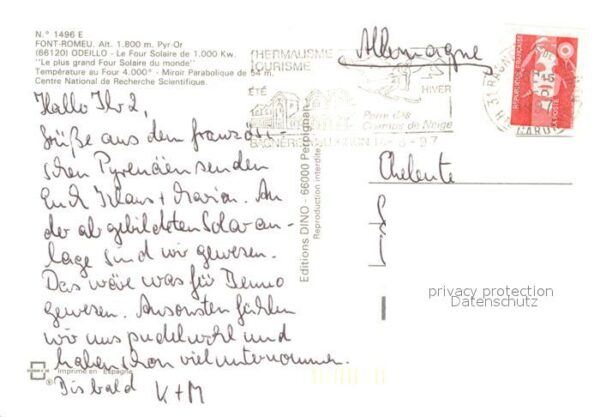 N.° 1496 E
FONT-ROMEU. Alt. 1.800 m. Pyr-Or
(66120) ODEILLO - Le Four Solaire de 1.000 Kw.
"Le plus grand Four Solaire du monde"
Température au Four 4.000° - Miroir Parabolique de 54 m.
Centre National de Recherche Scientifique.
Hallo Ihr 2,
Grüße aus den französi-
schen Pyrenäen senden
Euch Klaus + Marion. An
der abgebildeten Solaran-
lage sind wir gewesen.
Das wäre was für Benno
gewesen. Ansonsten fühlen
wir uns pudelwohl und
haben schon viel unternommen.
Bis bald K+M
Imprimé en Espagne
Editions DINO - 66000 Perpignan
Reproduction interdite
THERMALISME
TOURISME
ÉTÉ
HIVER
Porte des
Champs de Neige
Allemagne
RÉPUBLIQUE FRANÇAISE
privacy protection
Datenschutz